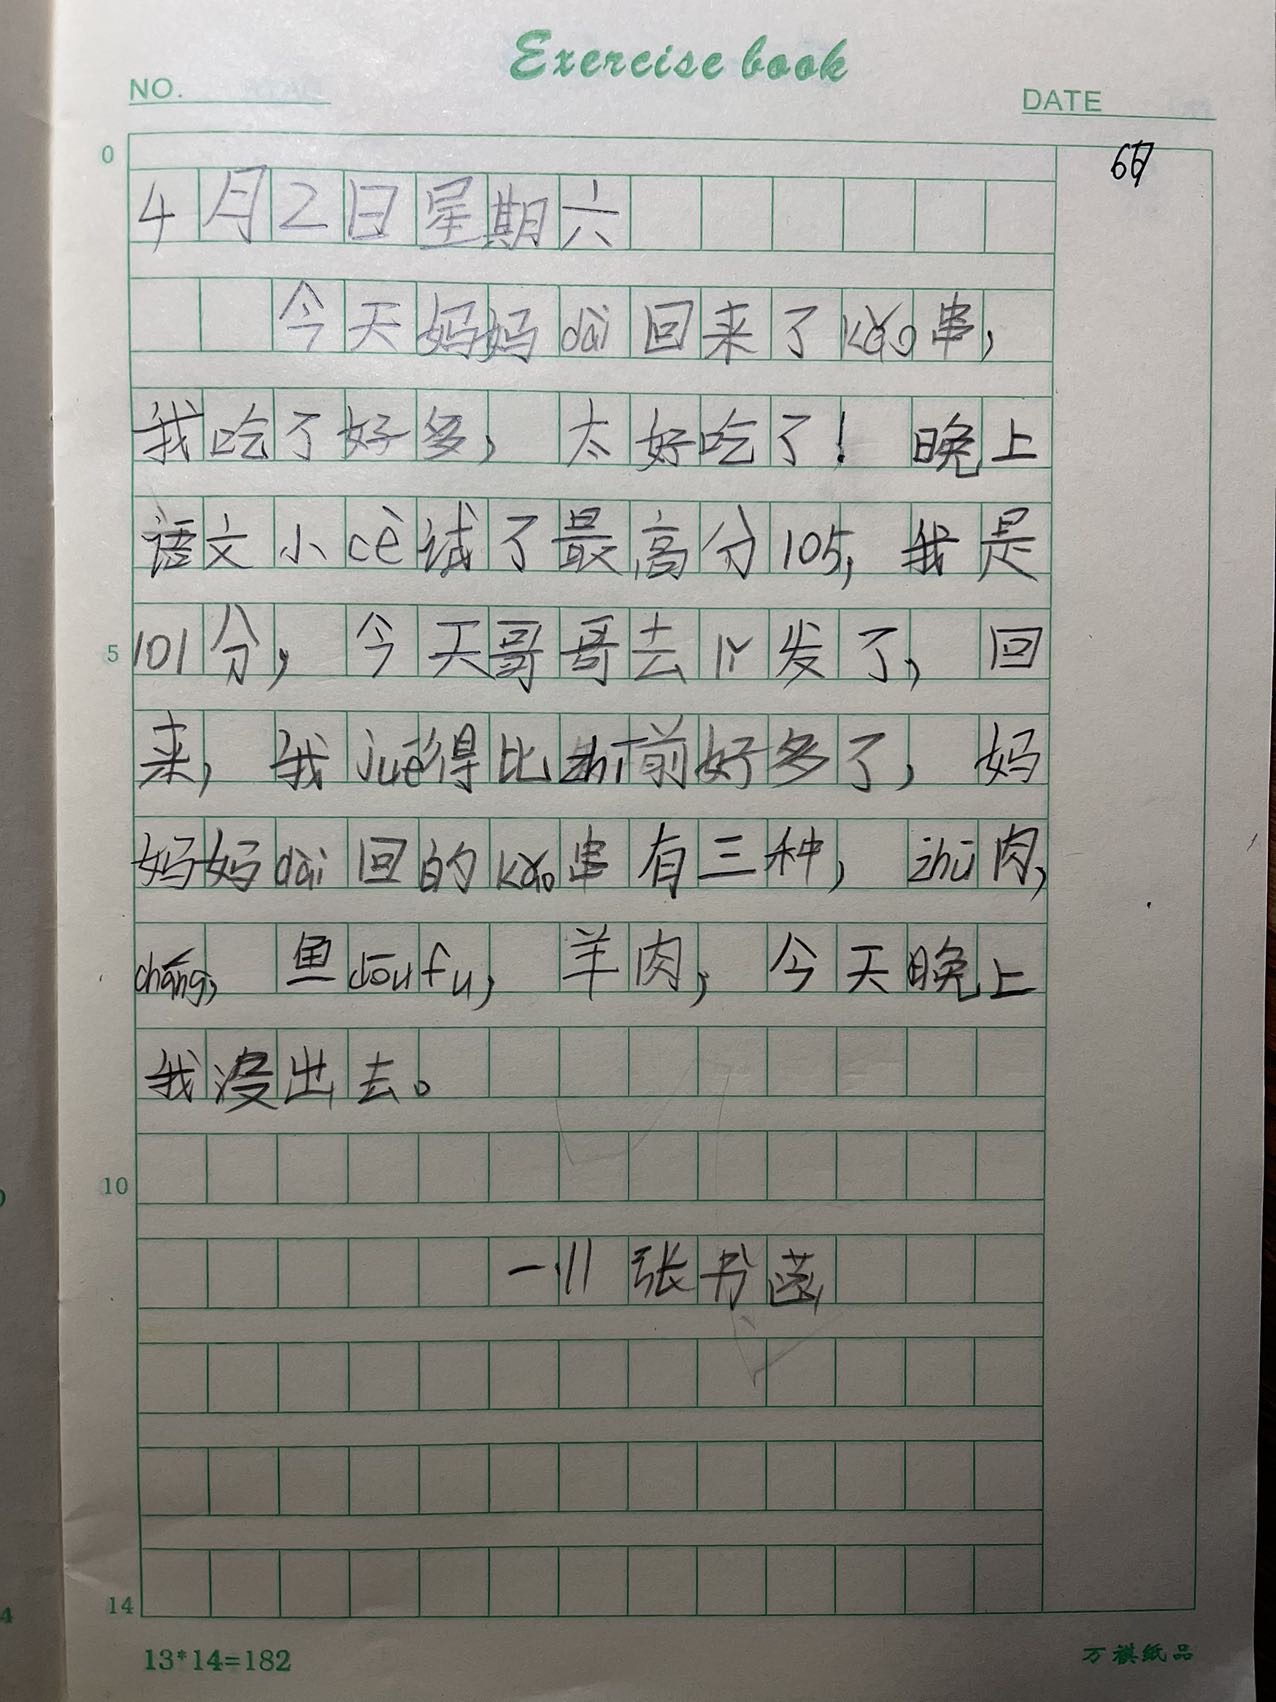 Exercise book
NO.
DATE
0
67
4月2日星期六
今天妈妈dài回来了kǎo串，
我吃了好多，太好吃了！晚上
语文小cè试了最高分105，我是
5
101分，今天哥哥去lǐ发了，回
来，我jué得比zhī前好多了，妈
妈妈dài回的kǎo串有三种，zhū肉
cháng，鱼dòufu，羊肉，今天晚上
我没出去。
10
一.11 张书菡
14
13*14=182
万祺纸品